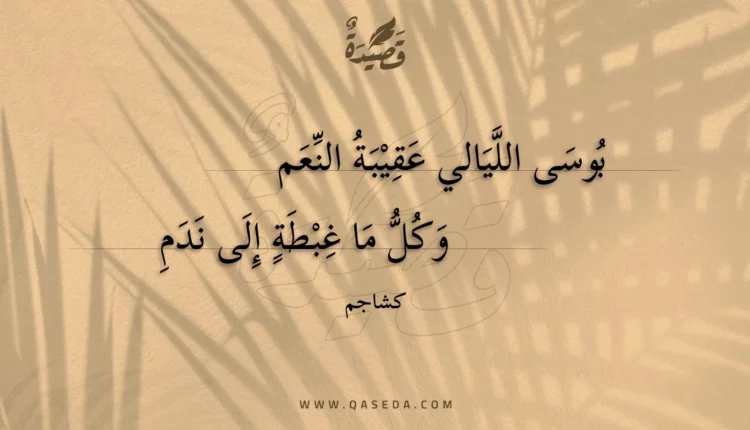 قَصِيْدَةٌ
بُوسَى اللَّيَالي عَقِيْبَةُ النِّعَم
وَكُلُّ مَا غِبْطَةٍ إِلَى نَدَمِ
كشاجم
WWW.QASEDA.COM